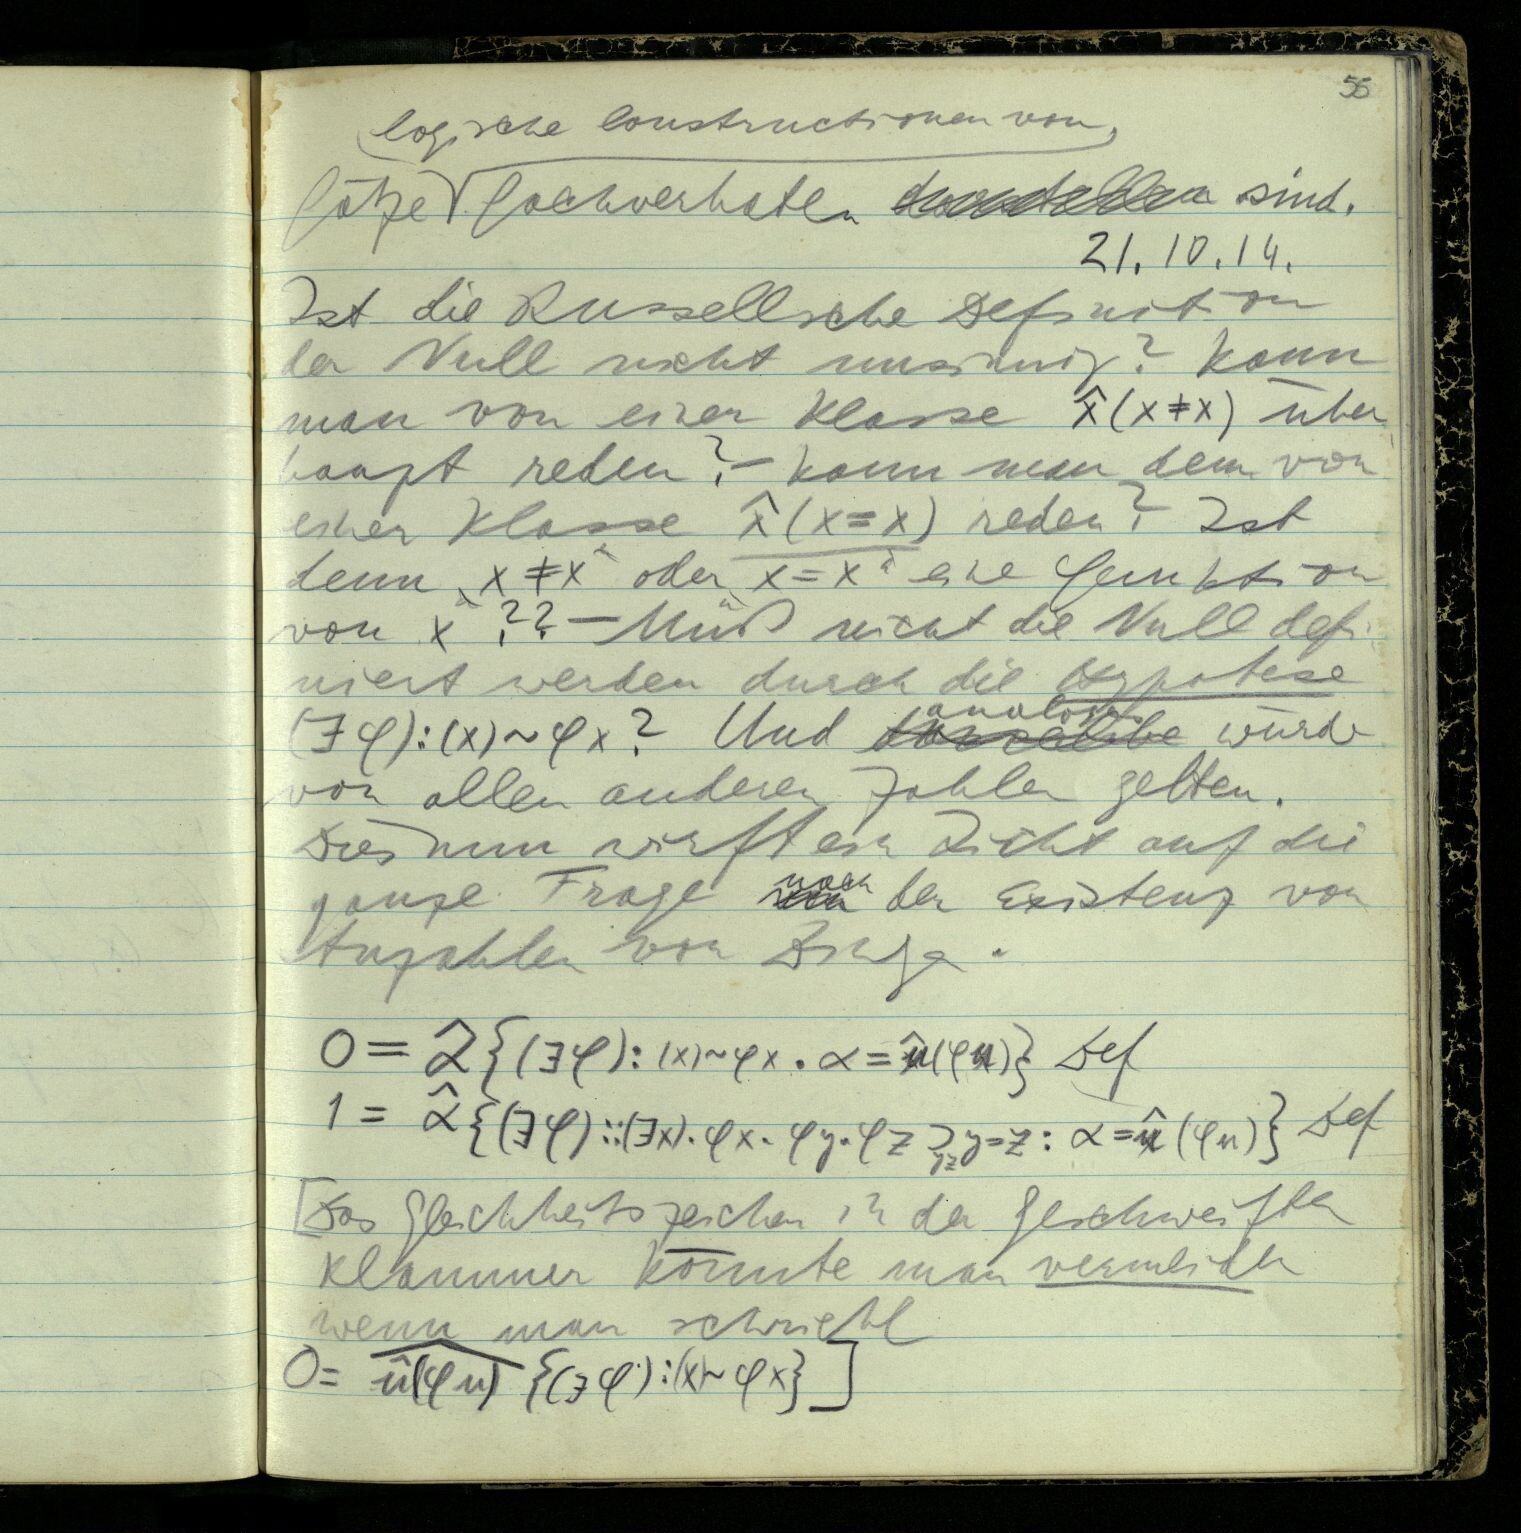 55
logische Constructionen von
Sätze Sachverhalten sind.
21.10.14.
Ist die Russellsche Definition
der Null nicht unsinnig? Kann
man von einer Klasse x̂(x≠x) über
haupt reden? – Kann man denn von
einer Klasse x̂(x=x) reden? Ist
denn x≠x oder x=x eine Funktion
von x?? – Muß nicht die Null defi-
niert werden durch die Hypotese
(∃φ):(x)~φx? Und analoges würde
von allen anderen Zahlen gelten.
Dies nun wirft ein Licht auf die
ganze Frage nach der Existenz von
Anzahlen von Dingen.
0 = α̂{(∃φ):(x)~φx.α=û(φu)} Def
1 = α̂{(∃φ)::(∃x).φx.φy.φz ⊃yz y=z:α=û(φu)} Def
[Das Gleichheitszeichen in der geschweiften
Klammer könnte man vermeiden
wenn man schriebe
0= û(φu){(∃φ):(x)~φx}]